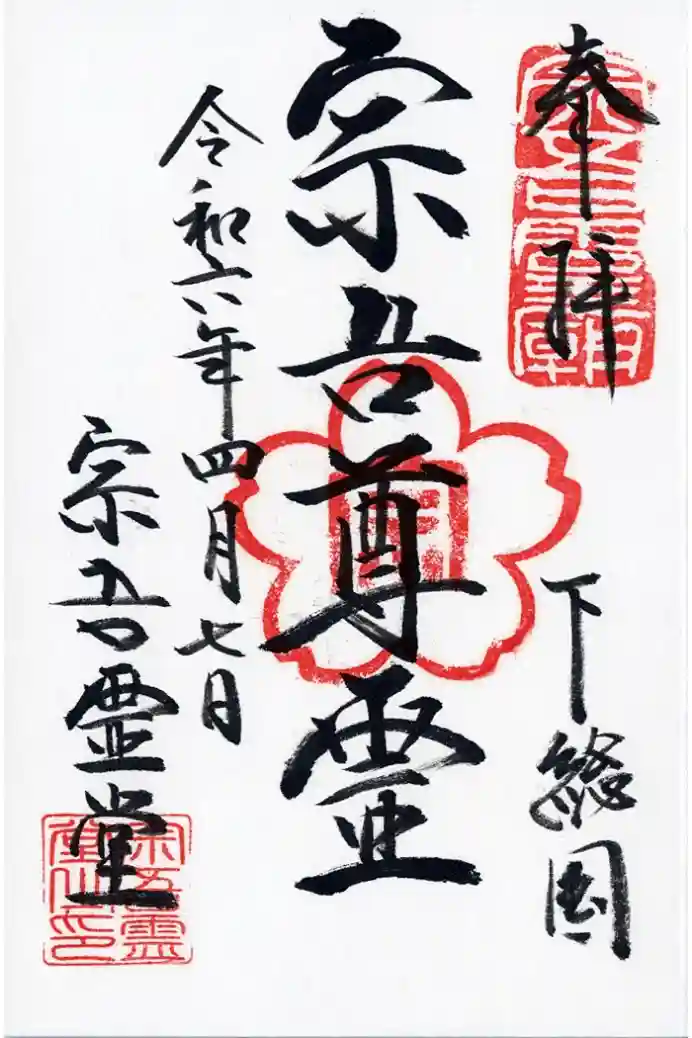 奉拝
下総国
宗吾尊霊
令和六年四月七日
宗吾霊堂
宗吾霊堂之印